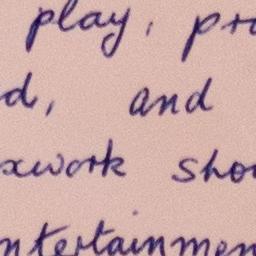 play, pro
d, and
xwork shou
ntertainmen